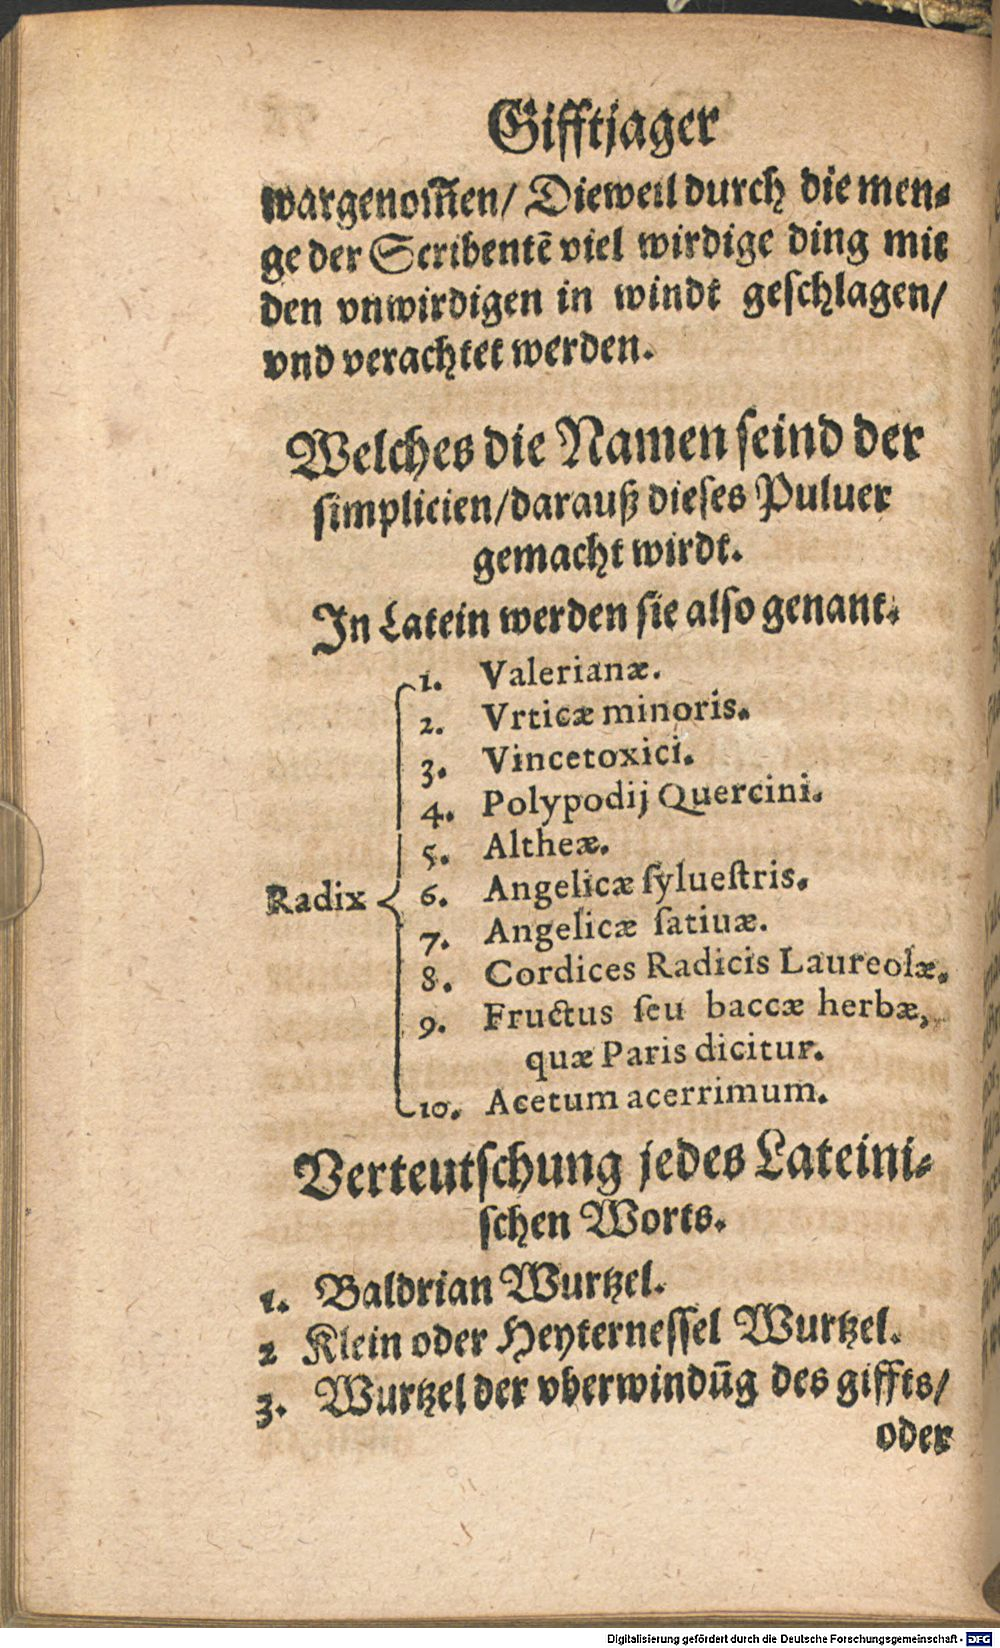 Gifftjager
wargenom̃en/ Dieweil durch die men⸗
ge der Scribentē viel wirdige ding mit
den vnwirdigen in windt geschlagen/
vnd verachtet werden.
Welches die Namen seind der
simplicien/darauß dieses Puluer
gemacht wirdt.
In Latein werden sie also genant.
1. Valerianæ.
2. Vrticæ minoris.
3. Vincetoxici.
4. Polypodij Quercini.
5. Altheæ.
Radix 6. Angelicæ sylueſtris.
7. Angelicæ ſatiuæ.
8. Cordices Radicis Laureolæ.
9. Fructus ſeu baccæ herbæ,
quæ Paris dicitur.
10. Acetum acerrimum.
Verteutschung jedes Lateini⸗
schen Worts.
1. Baldrian Wurtzel.
2 Klein oder Heyternessel Wurtzel.
3. Wurtzel der vberwindūg des giffts/
oder
Digitalisierung gefördert durch die Deutsche Forschungsgemeinschaft - DFG